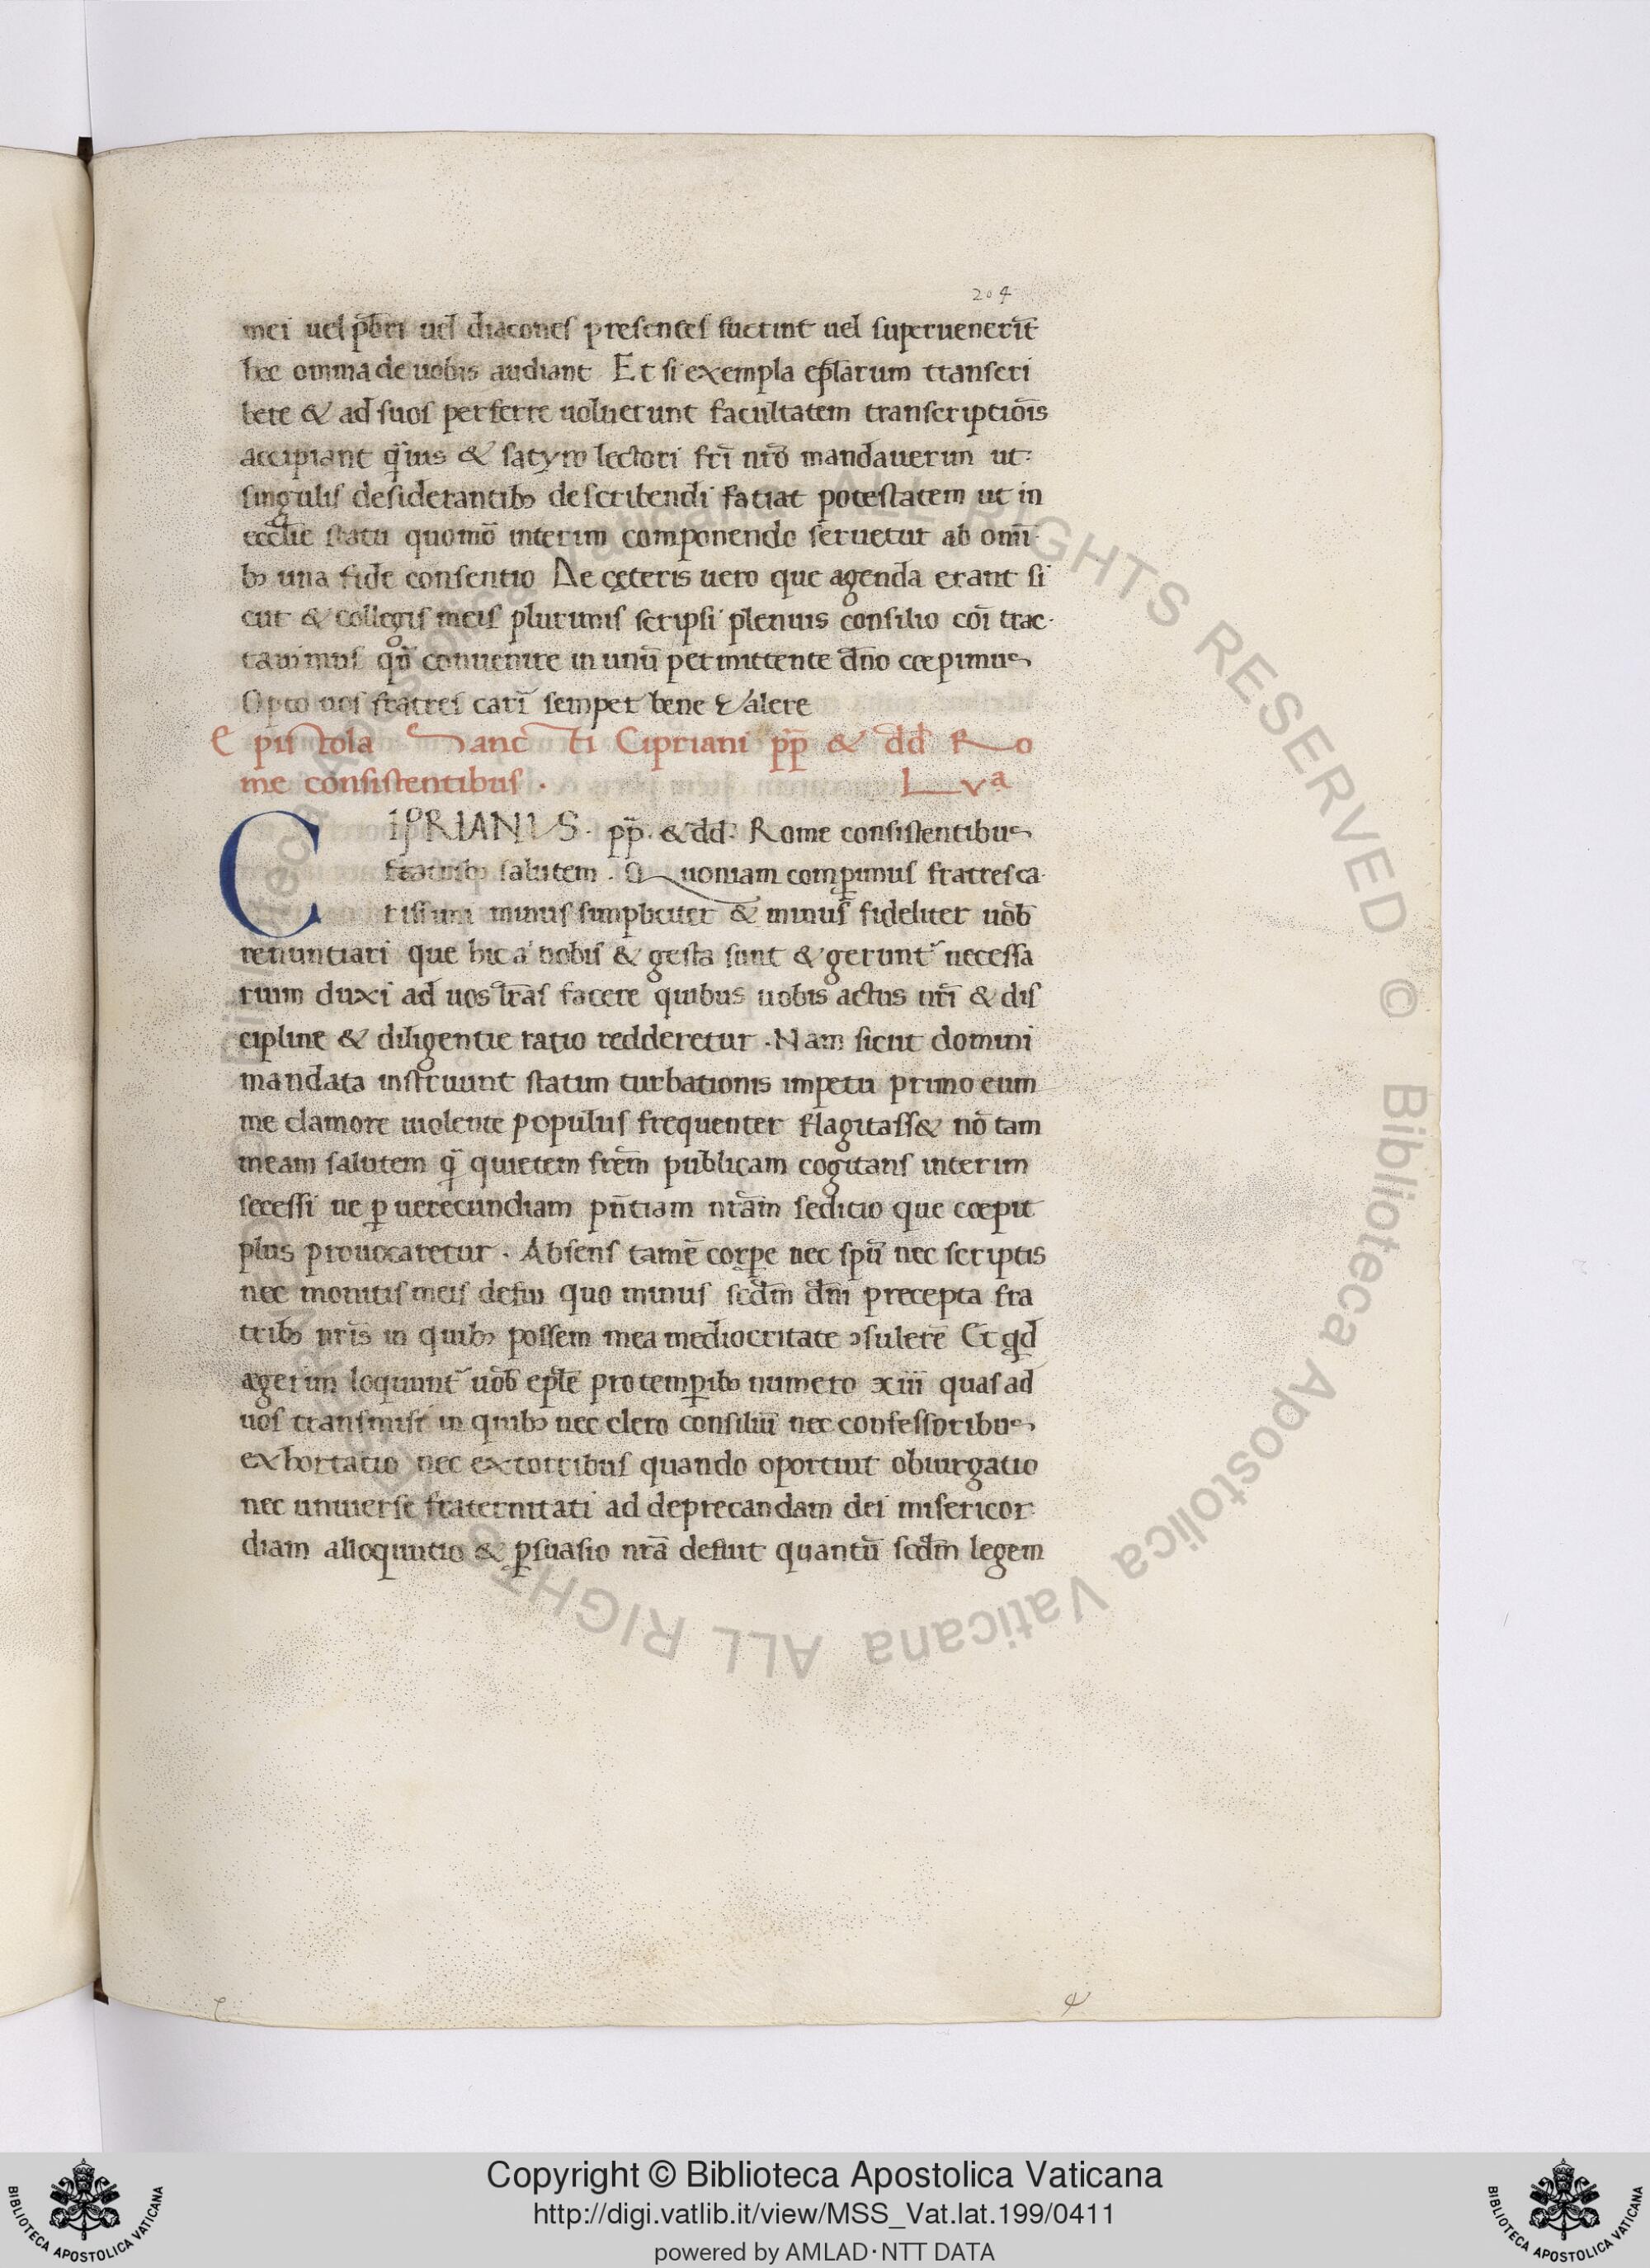 204
mei uel pb̄ri uel diacones presentes fuerint uel superuenerīt
hec omnia de uobis audiant Et si exempla epl̄arum transcri
bere & ad suos perferre uoluerunt facultatem transcriptiōis
accipiant q̄uis & satyro lectori fr̄i nr̄o mandauerim ut
singulis desiderantibꝫ describendi fatiat potestatem ut in
eccl̄ie statu quomō interim componendo seruetur ab omī
bꝫ una fide consentio De ceteris uero que agenda erant si
cut & collegis meis plurimis scripsi plenius consilio cōi trac
tauimus qn̄ conuenire in unū permittente dn̄o cœpimus
Opto uos fratres carī semper bene Valere
Epistola Sancti Cipriani pp̄ & dd Ro
me consistentibus. Lvª
CIPRIANUS. pp̄. & dd. Rome consistentibus
fratribꝫ salutem. Quoniam comꝑimus fratres ca
rissimi minus simpliciter & minus fideliter uob̄
renuntiari que hic a nobis & gesta sunt & gerunt᷑ necessa
rium duxi ad uos lr̄as facere quibus uobis actus nr̄i & dis
cipline & diligentie ratio redderetur. Nam sicut domini
mandata instruunt statim turbationis impetu primo cum
me clamore uiolente populus frequenter flagitass& nō tam
meam salutem q̄ quietem frēm publicam cogitans interim
secessi ne ꝑ uerecundiam pn̄tiam nr̄am seditio que cœpit
plus prouocaretur. Absens tamē corꝑe nec spū nec scriptis
nec monitis meis defui quo minus scdm̄ dn̄i precepta fra
tribꝫ nr̄is in quibꝫ possem mea mediocritate ꝯsulerē Et qd
egerim loquunt᷑ uob̄ epl̄e pro temꝑibꝫ numero xiii quas ad
uos transmisi in quibꝫ nec clero consiliū nec confessoribus
exhortatio nec extorribus quando oportuit obiurgatio
nec uniuerse fraternitati ad deprecandam dei misericor
diam alloquutio & ꝑsuasio nr̄a defuit quantū scdm̄ legem
Biblioteca Apostolica Vaticana ALL RIGHTS RESERVED © Biblioteca Apostolica Vaticana ALL RIGHTS RESERVED ©
Copyright © Biblioteca Apostolica Vaticana
http://digi.vatlib.it/view/MSS_Vat.lat.199/0411
powered by AMLAD·NTT DATA
BIBLIOTECA APOSTOLICA VATICANA
BIBLIOTECA APOSTOLICA VATICANA